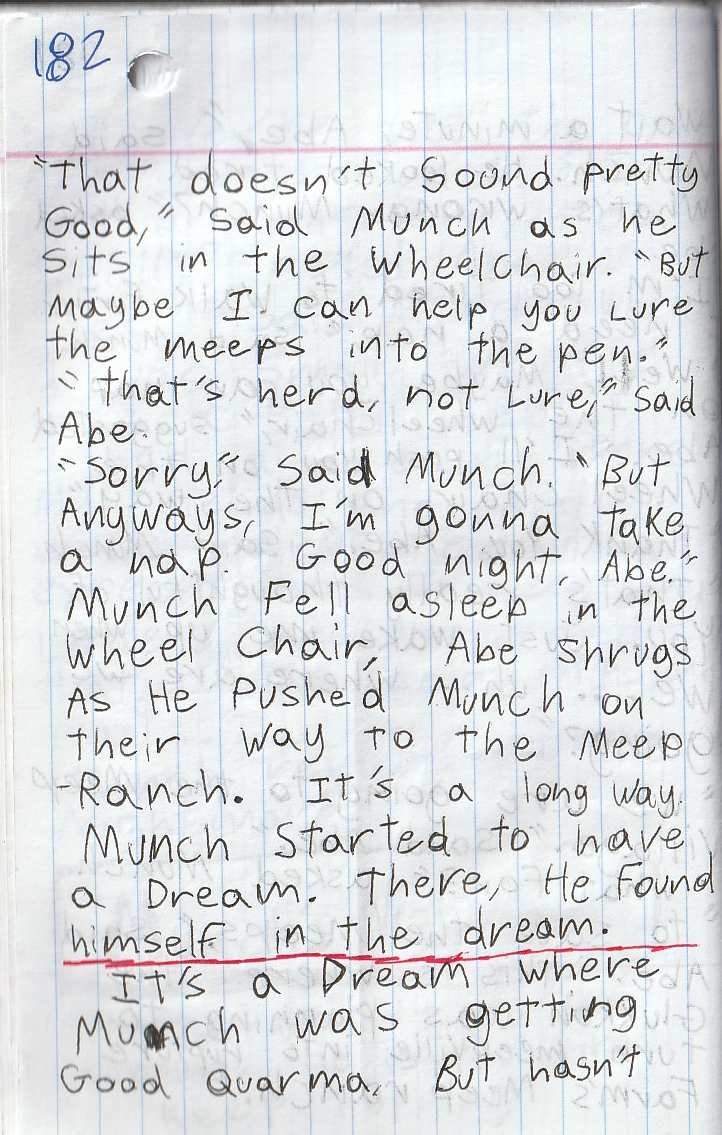 182
"That doesn't Sound pretty
Good," Said Munch as he
Sits in the wheelchair. "But
maybe I can help you Lure
the meeps into the pen."
"That's herd, not Lure," Said
Abe.
"Sorry," Said Munch. "But
Anyways, I'm gonna take
a nap. Good night, Abe."
Munch Fell asleep in the
wheel Chair, Abe Shrugs
As He Pushed Munch on
their way to the Meep
-Ranch. It's a long way.
Munch Started to have
a Dream. There, He Found
himself in the dream.
It's a Dream where
Munch was getting
Good Quarma. But hasn't